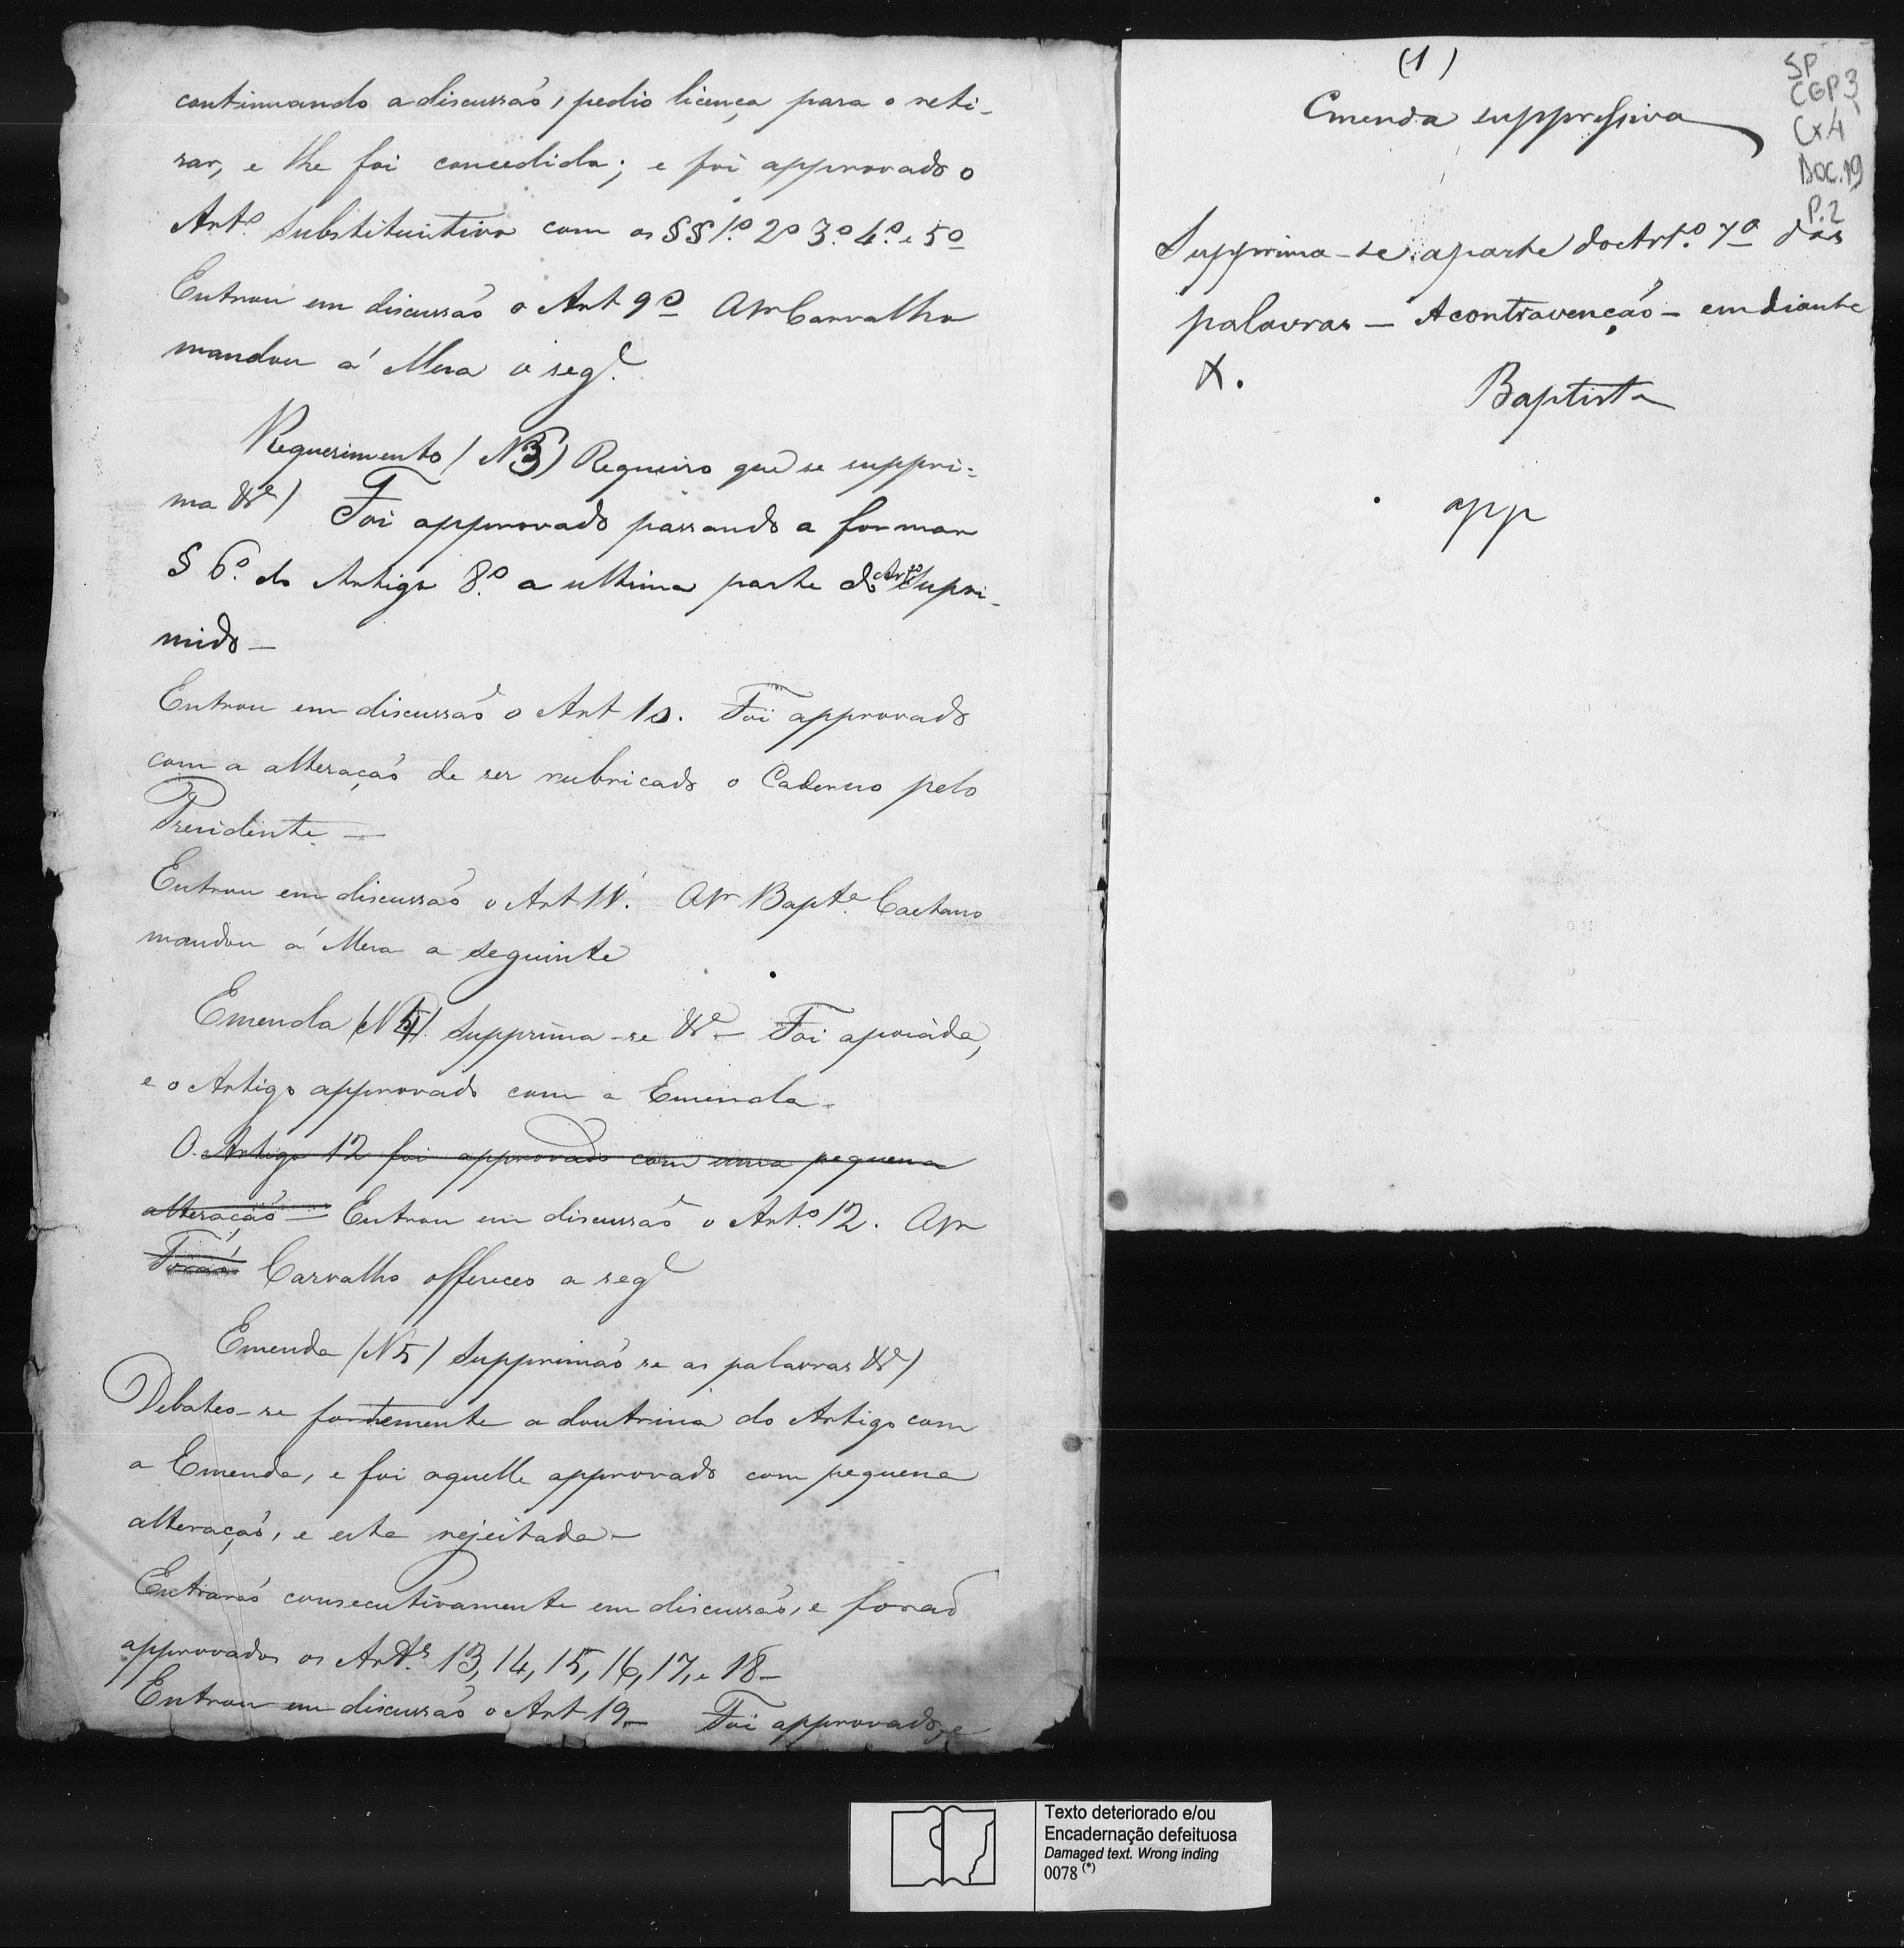 continuando a discussão, pedio licença para o reti-
rar, e lhe foi concedida; e foi approvado o
Artº. substituitivo com os §§ 1º. 2º 3º. 4º. e 5º
Entrou em discussão o Art 9º O Sr Carvalho
mandou á Mesa o seg.e
Requerimento (N 3) Requeiro que se suppri=
ma &ª) Foi approvado passando a formar
§ 6º. do Artigo 8º. a ultima parte do Artº supri-
mido —
Entrou em discussão o Art 10. Foi approvado
com a alteração de ser rubricado o Caderno pelo
Presidente —
Entrou em discussão o Art 11. O Sr Bapt.a Caetano
mandou á Mesa a seguinte
Emenda (N 4) Supprima-se &ª — Foi apoiada,
e o Artigo approvado com a Emenda.
O Artigo 12 foi approvado com uma pequena
alteração — Entrou em discussão o Artº. 12. O Sr
Carvalho offereceo a seg.e
Emenda (N 5) Supprimão se as palavras &ª)
Debateo-se fortemente a doutrina do Artigo com
a Emenda, e foi aquelle approvado com pequena
alteração, e esta rejeitada —
Entrarão consecutivamente em discussão, e forão
approvados os Art.s 13, 14, 15, 16, 17, e 18 —
Entrou em discussão o Art 19 — Foi approvado, e
(1)
Emenda suppressiva
Supprima-se a parte do Artº. 7º das
palavras — A contravenção — em diante
X.
Baptista
app
SP
CGP3
Cx4
Doc.19
P.2
Texto deteriorado e/ou
Encadernação defeituosa
Damaged text. Wrong inding
0078 (*)